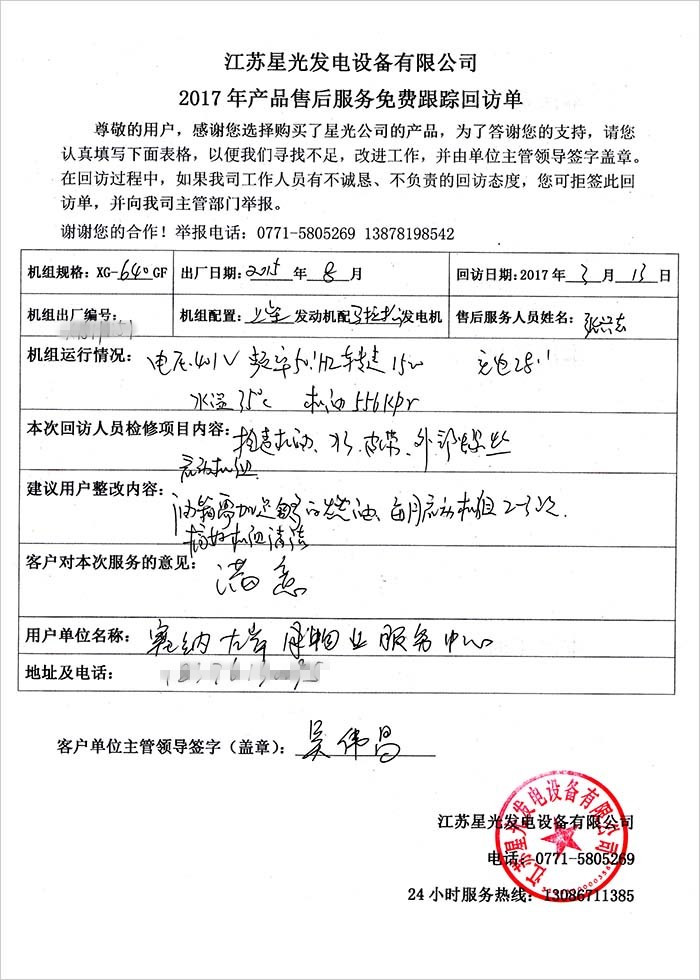 江苏星光发电设备有限公司
2017年产品售后服务免费跟踪回访单
尊敬的用户，感谢您选择购买了星光公司的产品，为了答谢您的支持，请您
认真填写下面表格，以便我们寻找不足，改进工作，并由单位主管领导签字盖章。
在回访过程中，如果我司工作人员有不诚恳、不负责的回访态度，您可拒签此回
访单，并向我司主管部门举报。
谢谢您的合作！举报电话：0771-5805269 13878198542
机组规格：XG-640GF 出厂日期：2015 年 8 月 回访日期：2017 年 3 月 13 日
机组出厂编号： 机组配置：上柴 发动机配 马拉松 发电机 售后服务人员姓名：
机组运行情况： 电压401V 频率50.1HZ 转速15 充电28.1
水温35℃ 机油556kpr
本次回访人员检修项目内容：检查机油、水、皮带、外部
启动机组
建议用户整改内容：油箱需加足够的燃油、每月启动机组2-3次.
搞好机组清洁
客户对本次服务的意见：满意
用户单位名称：塞纳左岸 物业服务中心
地址及电话：
客户单位主管领导签字（盖章）：吴伟昌
江苏星光发电设备有限公司
江苏星光发电设备有限公司
电话：0771-5805269
24小时服务热线：13086711385